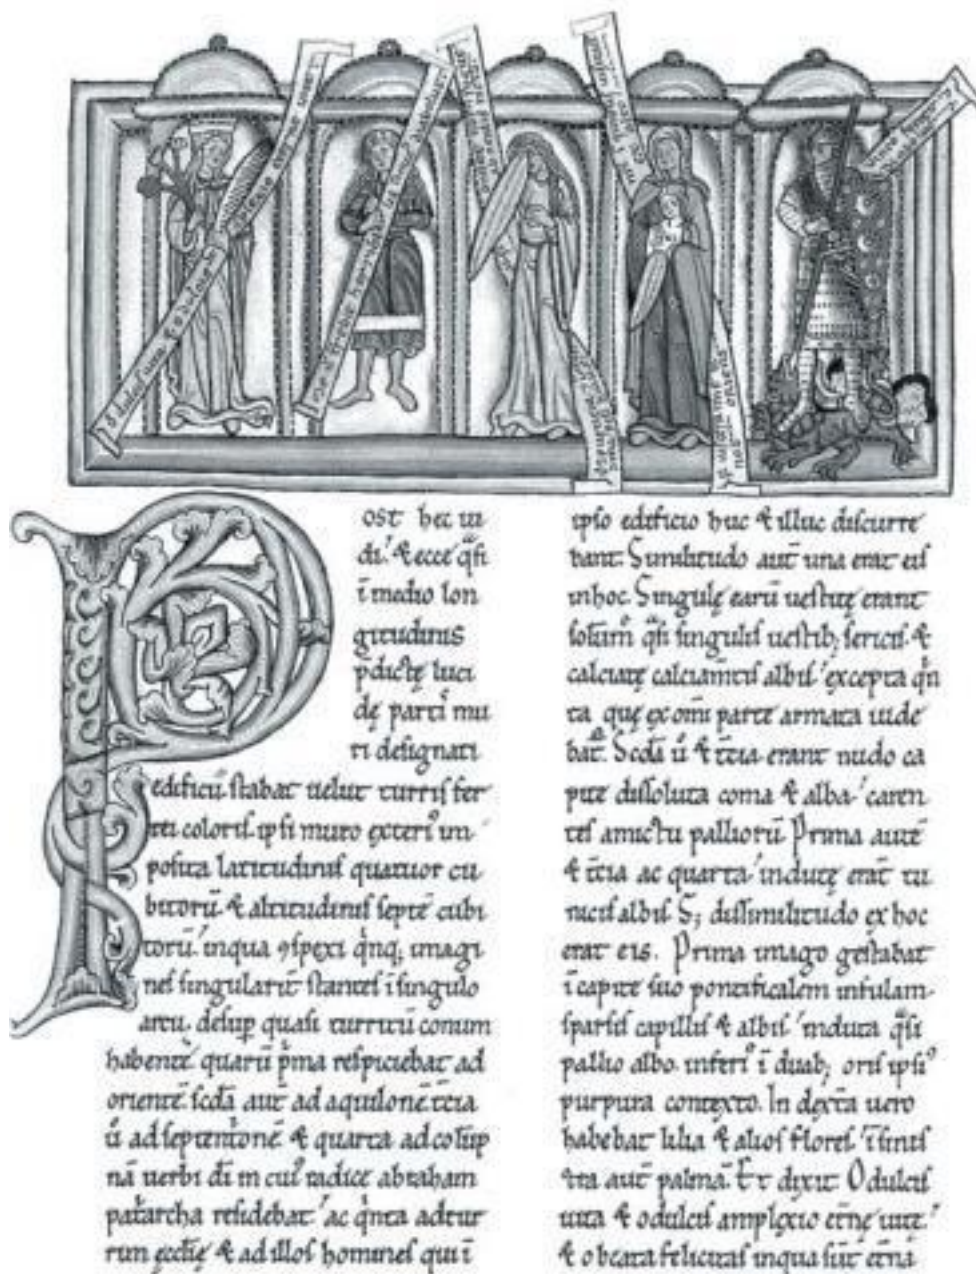 O dulcis uita & o dulcis amplexio etne uite
Post hec ui
di. & ecce q̃si
ĩ medio lon
gitudinis
p̄dictę luci
dę parti mu
ri designati
edificii stabat uelut turris fer
rei coloris. ipsi muro exteriꝰ im
posita latitudinis quatuor cu
bitorũ. & altitudinis septẽ cubi
torũ. inqua ꝯspexi q̇nq; imagi
nes singularit̃ stantes ĩ singulo
arcu. desup̱ quasi turritũ conum
habentẽ quarũ p̊ma respiciebat ad
orientẽ. scd̃a aut̃ ad aquilonẽ t̃cia
ů ad septent̊onẽ & quarta ad colũp
nã uerbi dĩ in cuiꝰ radice abraham
pat̊archa residebat ac q̇nta ad tur
rim ęcclię & ad illos homines qui ĩ
ipso edificio huc & illuc discurre
bant. Similitudo aut̃ una erat eis
inhoc. Singulę earũ uestitę erant
solum q̃si singulis uestib; sericis. &
calciatę calciam̃tis albis. excepta q̇n
ta quę ex omi parte armata uide
bat᷑. Scd̃a ů & t̃cia erant nudo ca
pite dissoluta coma & alba. caren
tes amictu palliorũ. Prima autẽ
& t̃cia ac quarta. indutę erãt tu
nicis albis. S; dissimilitudo ex hoc
erat eis. Prima imago gestabat
ĩ capite suo pontificalem infulam
sparsis capillis & albis. induta q̃si
pallio albo. inferiꝰ ĩ duab; oris ipsiꝰ
purpura contexto. In dext̃a uero
habebat lilia & alios flores. ĩ sinis
tra aut̃ palmã. Et dixit. O dulcis
uita & o dulcis amplęxio et̃nę uitę.
& o beata felicitas inqua sũt et̃na